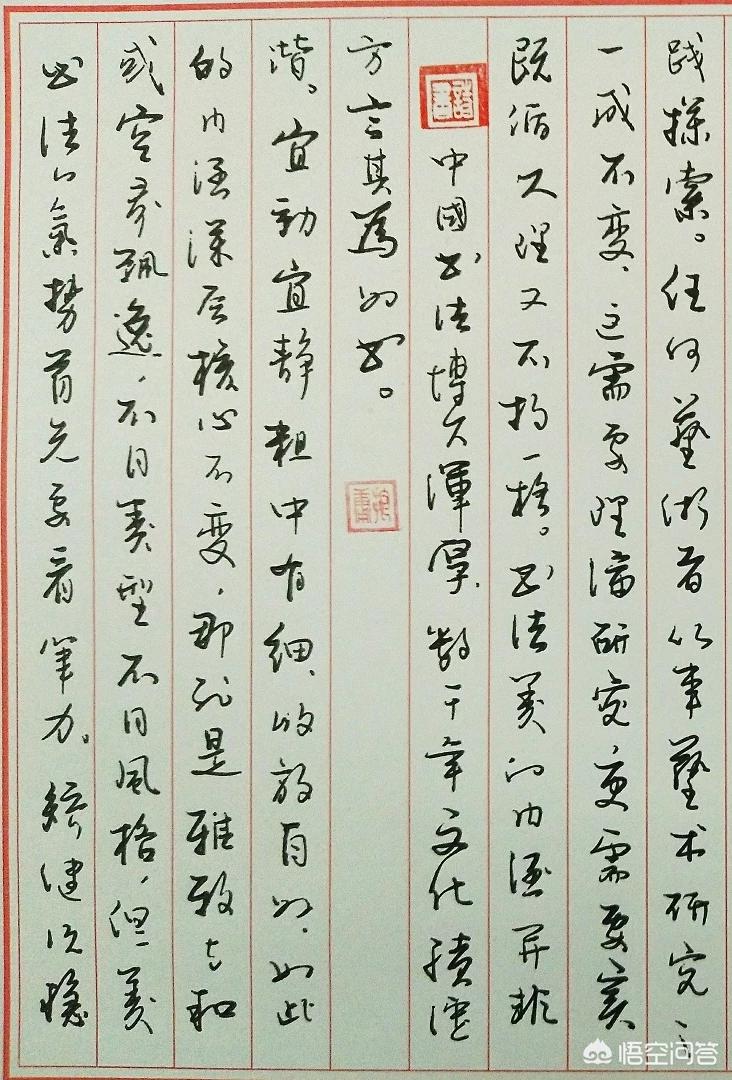 书法的氣势首先要看笔力。矫健沉稳
或空灵飘逸,不同类型不同风格,但美
的内涵深层核心不变,那就是雅致与和
谐。宜动宜静粗中有细、收放自如,如此
方言其為好书。
中國书法博大渾厚,数千年文化積淀
既循大理又不拘一格。书法美的内涵并非
一成不变、这需要理论研究更需要实
践探索。任何藝术首从事藝术研究
悟空问答